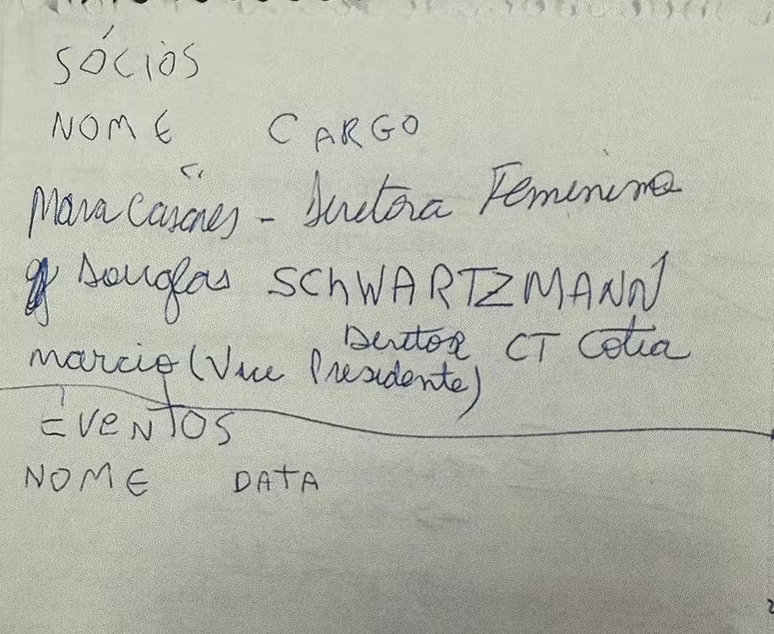 SÓCIOS
NOME CARGO
Mara Casares - Diretora Feminina
Douglas SCHWARTZMANN
Diretor CT Cotia
Marcio (Vice Presidente)
EVENTOS
NOME DATA